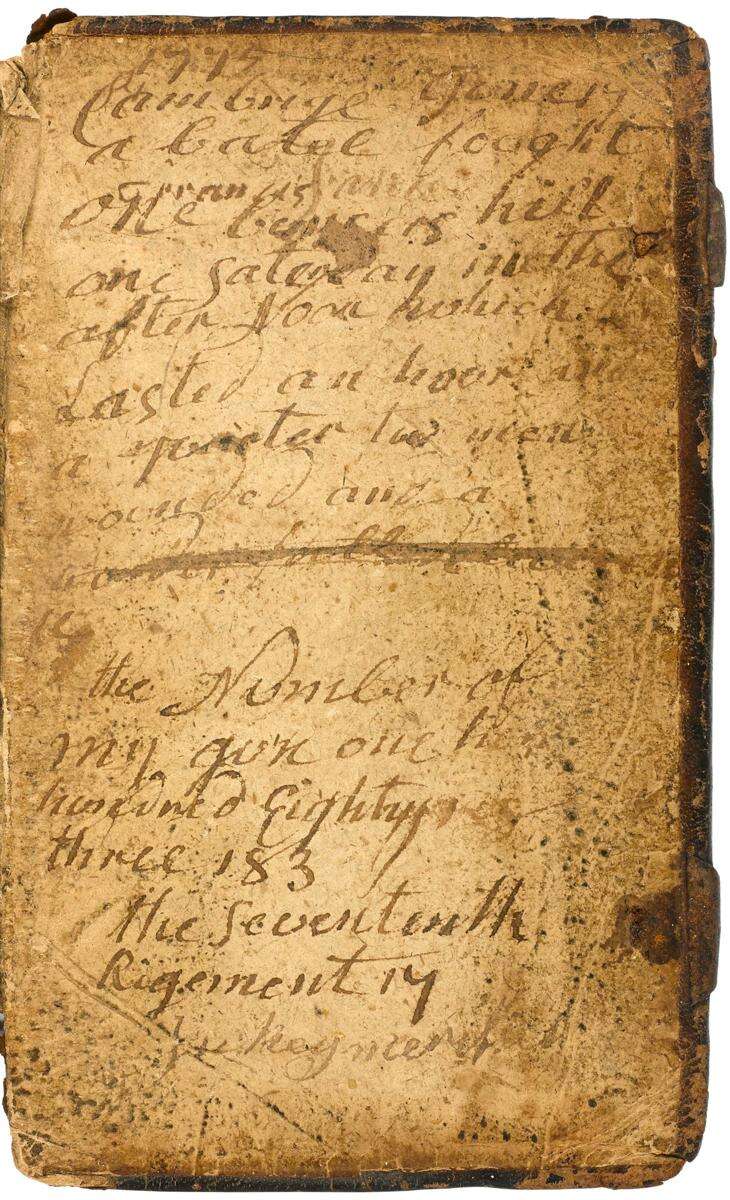 1775
Cambrige Joune 17
a batel fought
one buncers hill
one Saterday in the
after Noon which
Lasted an hour and
a quorter two men
wounded and a
the Number of
my gon one hun
hundred Eighty
three 183
the sevententh
Rigement 17